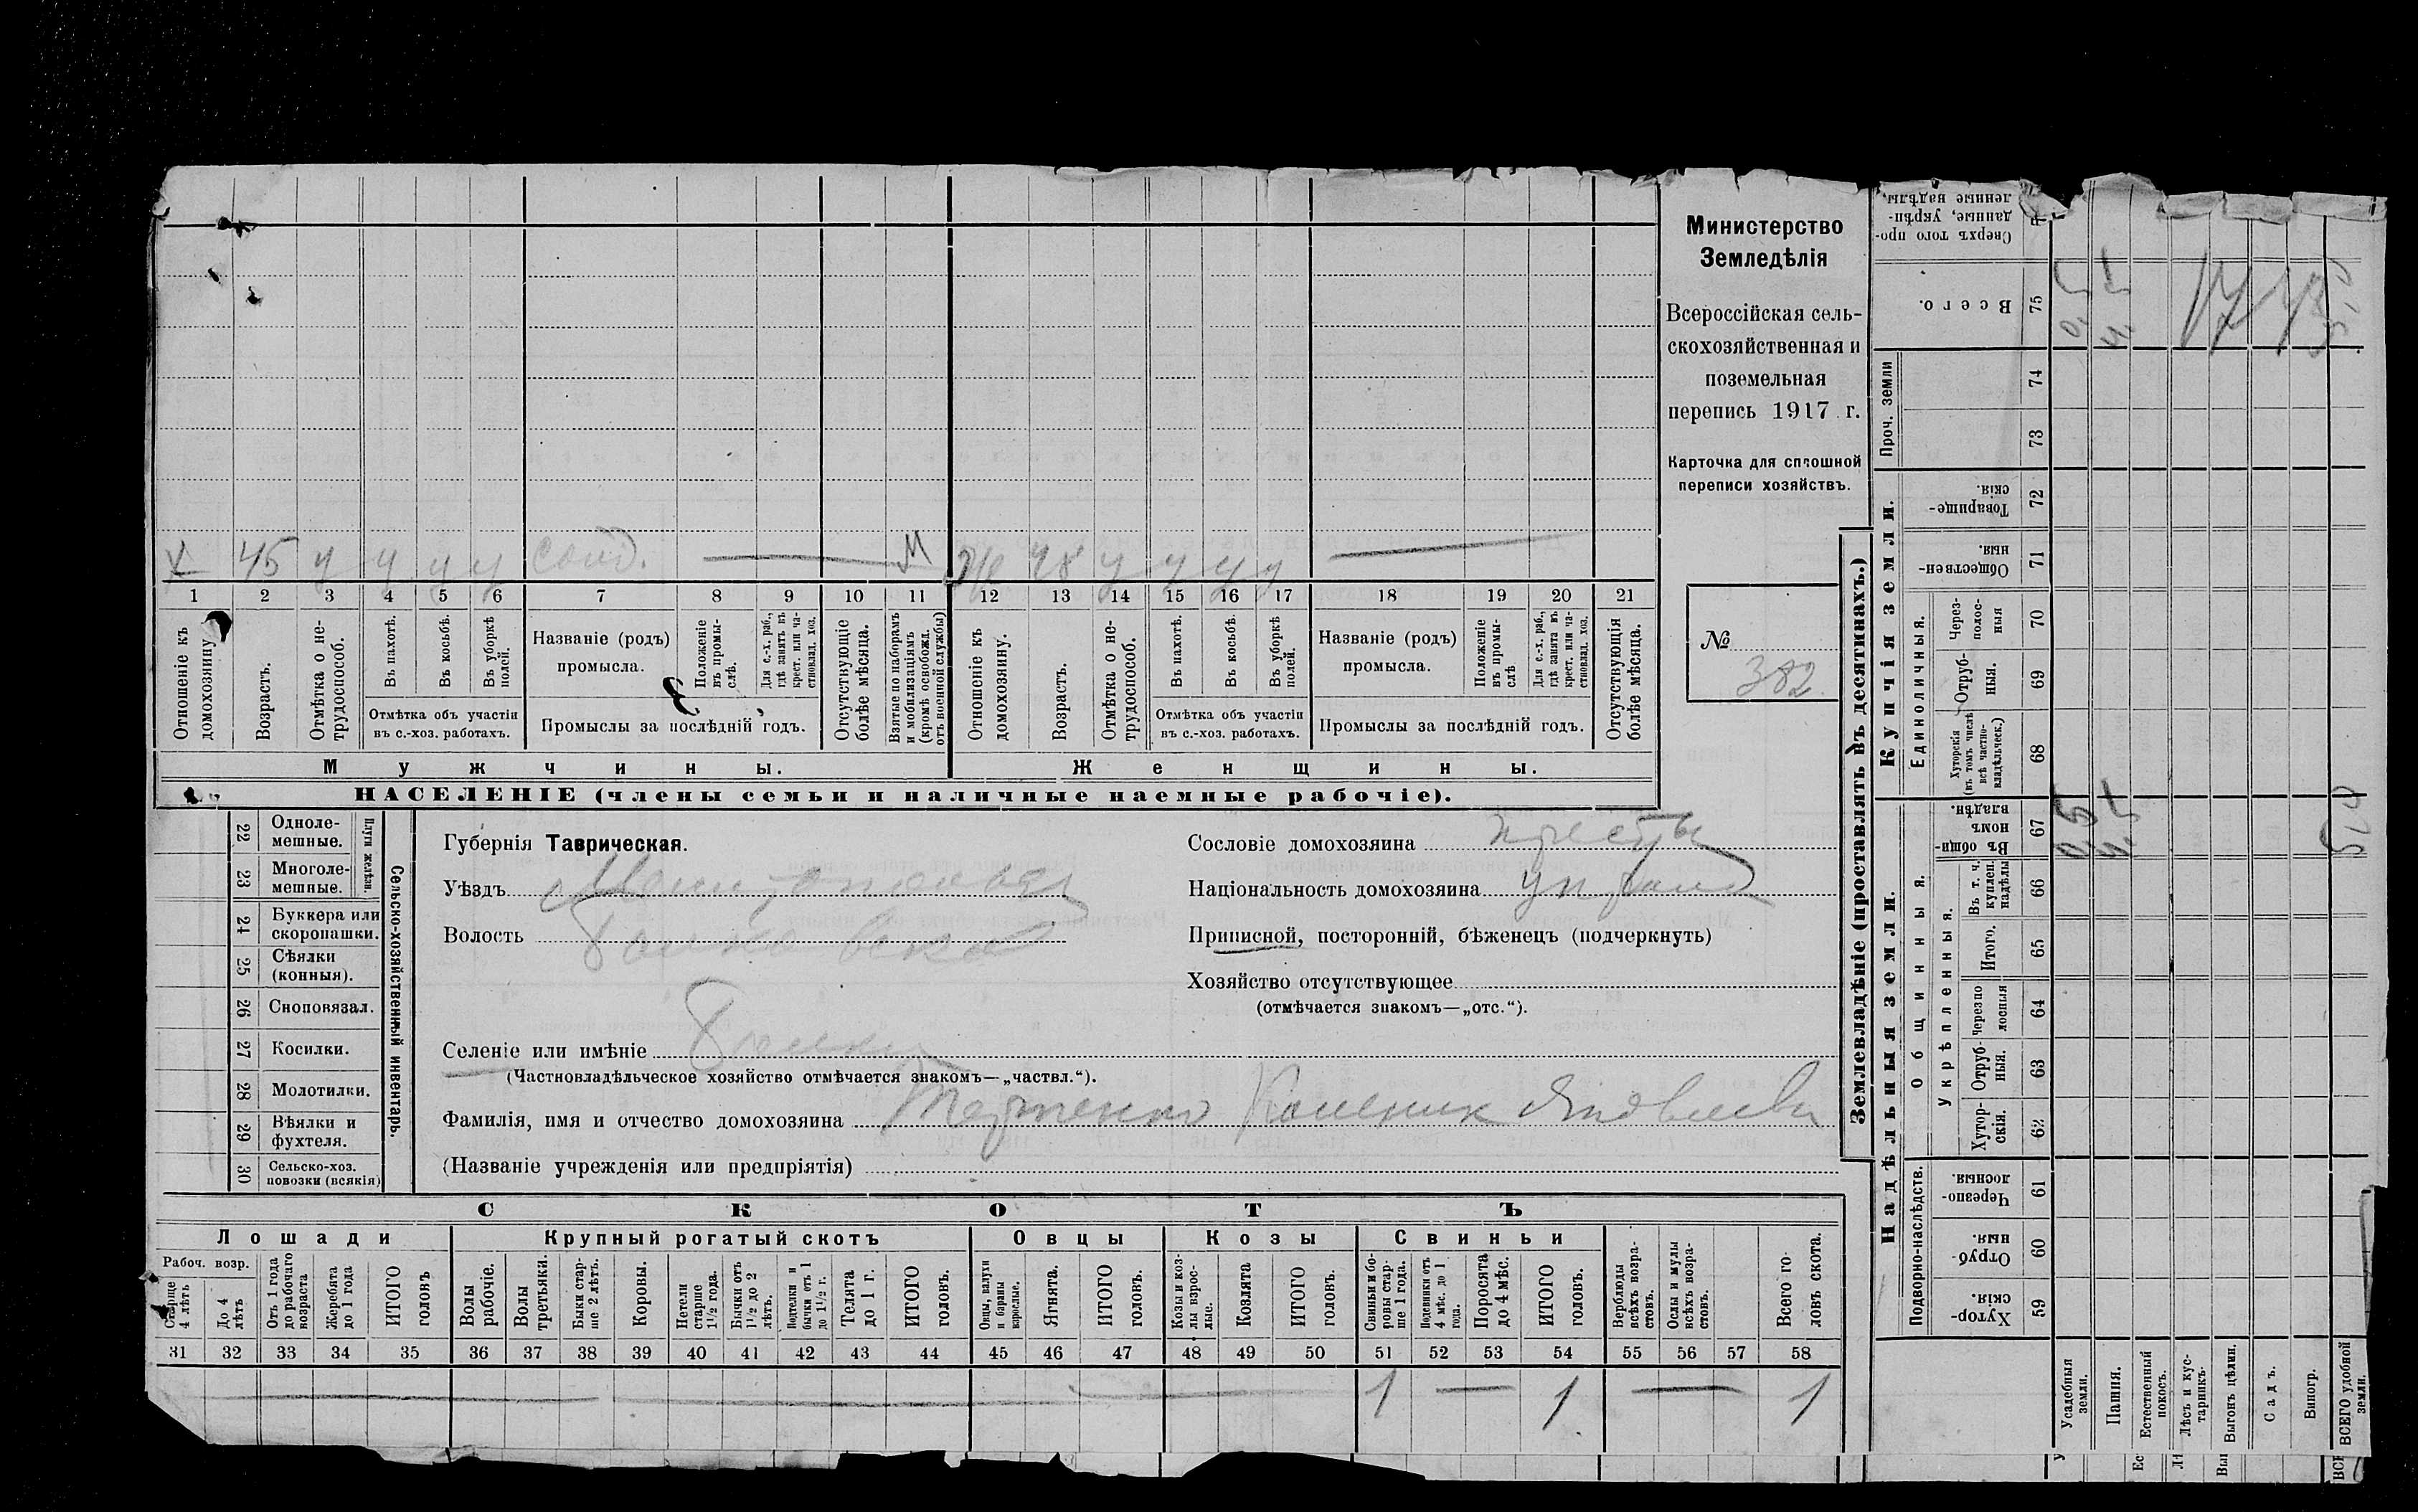 Министерство
Земледѣлія
Всероссійская сель-
скохозяйственная и
поземельная
перепись 1917 г.
Карточка для сплошной
переписи хозяйствъ.
№
382
Х 45 у у у у солд. — М Ж 48 у у у у —
1 2 3 4 5 6 7 8 9 10 11 12 13 14 15 16 17 18 19 20 21
Отношеніе къ домохозяину
Возрастъ.
Отмѣтка о не-трудоспособ.
Въ пахотѣ.
Въ косьбѣ.
Въ уборкѣ полей.
Отмѣтка объ участіи
въ с.-хоз. работахъ.
Названіе (родъ)
промысла.
Положеніе въ промы-слѣ.
Для с.-х. раб., гдѣ занятъ въ крест. или ча-стновлад. хоз.
Промыслы за послѣдній годъ.
Отсутствующіе болѣе мѣсяца.
Взятые по наборамъ и мобилизаціямъ (кромѣ освобожд. отъ военной службы)
Отношеніе къ домохозяину.
Возрастъ.
Отмѣтка о не-трудоспособ.
Въ пахотѣ.
Въ косьбѣ.
Въ уборкѣ полей.
Отмѣтка объ участіи
въ с.-хоз. работахъ.
Названіе (родъ)
промысла.
Положеніе въ промы-слѣ
Для с.-х. раб., гдѣ занята въ крест. или ча-стновлад. хоз.
Промыслы за послѣдній годъ.
Отсутствующія болѣе мѣсяца.
Мужчины.
Женщины.
НАСЕЛЕНІЕ (члены семьи и наличные наемные рабочіе).
Сельско-хозяйственный инвентарь.
Плуги желѣзн.
22 Одноле-мешные.
23 Многоле-мешные.
24 Буккера или скоропашки.
25 Сѣялки (конныя).
26 Сноповязал.
27 Косилки.
28 Молотилки.
29 Вѣялки и фухтеля.
30 Сельско-хоз. повозки (всякія)
Губернія Таврическая.
Уѣздъ
Волость
Селеніе или имѣніе
(Частновладѣльческое хозяйство отмѣчается знакомъ—„частвл.“).
Фамилія, имя и отчество домохозяина
(Названіе учрежденія или предпріятія)
Сословіе домохозяина
Національность домохозяина
Приписной, посторонній, бѣженецъ (подчеркнуть)
Хозяйство отсутствующее
(отмѣчается знакомъ—„отс.“).
СКОТЪ
Лошади Крупный рогатый скотъ Овцы Козы Свиньи
Рабоч. возр.
Старше 4 лѣтъ
До 4 лѣтъ
Отъ 1 года до рабочаго возраста
Жеребята до 1 года
ИТОГО головъ
Волы рабочіе.
Волы третьяки.
Быки стар-ше 2 лѣтъ.
Коровы.
Нетели старше 1½ года.
Бычки отъ 1½ до 2 лѣтъ.
Подтелки и бычки отъ 1 до 1½ г.
Телята до 1 г.
ИТОГО головъ.
Овцы, валухи и бараны взрослые.
Ягнята.
ИТОГО головъ.
Козы и коз-лы взрос-лые.
Козлята
ИТОГО головъ.
Свиньи и бо-ровы стар-ше 1 года.
Подсвинки отъ 4 мѣс. до 1 года.
Поросята до 4 мѣс.
ИТОГО головъ.
Верблюды всѣхъ возра-стовъ.
Ослы и мулы всѣхъ возра-стовъ.
Всего го-ловъ скота.
31 32 33 34 35 36 37 38 39 40 41 42 43 44 45 46 47 48 49 50 51 52 53 54 55 56 57 58
1 — 1 — 1
Землевладѣніе (проставлять въ десятинахъ.)
Надѣльныя земли.
Купчія земли.
Проч. земли
Подворно-наслѣдств.
Общинныя.
Укрѣпленныя.
Единоличныя.
59 Хутор-скія.
60 Отруб-ныя.
61 Черезпо-лосныя.
62 Хутор-скія.
63 Отруб-ныя.
64 Черезпо-лосныя
65 Итого.
66 Въ т. ч. куплен. надѣлы
67 Въ общин-номъ владѣн.
68 Хуторскія (въ томъ числѣ всѣ частно-владѣльческ.)
69 Отруб-ныя.
70 Через-полос-ныя
71 Обществен-ныя.
72 Товарище-скія.
73
74
75 Всего.
Сверхъ того про-данные, укрѣп-ленные надѣлы.
Усадебныя земли. 0,5 0,5
Пашня. 4,5 4,5
Естественный покосъ.
Лѣсъ и кус-тарникъ.
Выгонъ цѣлин.
Садъ.
Виногр.
ВСЕГО удобной земли. 5,0 5,0